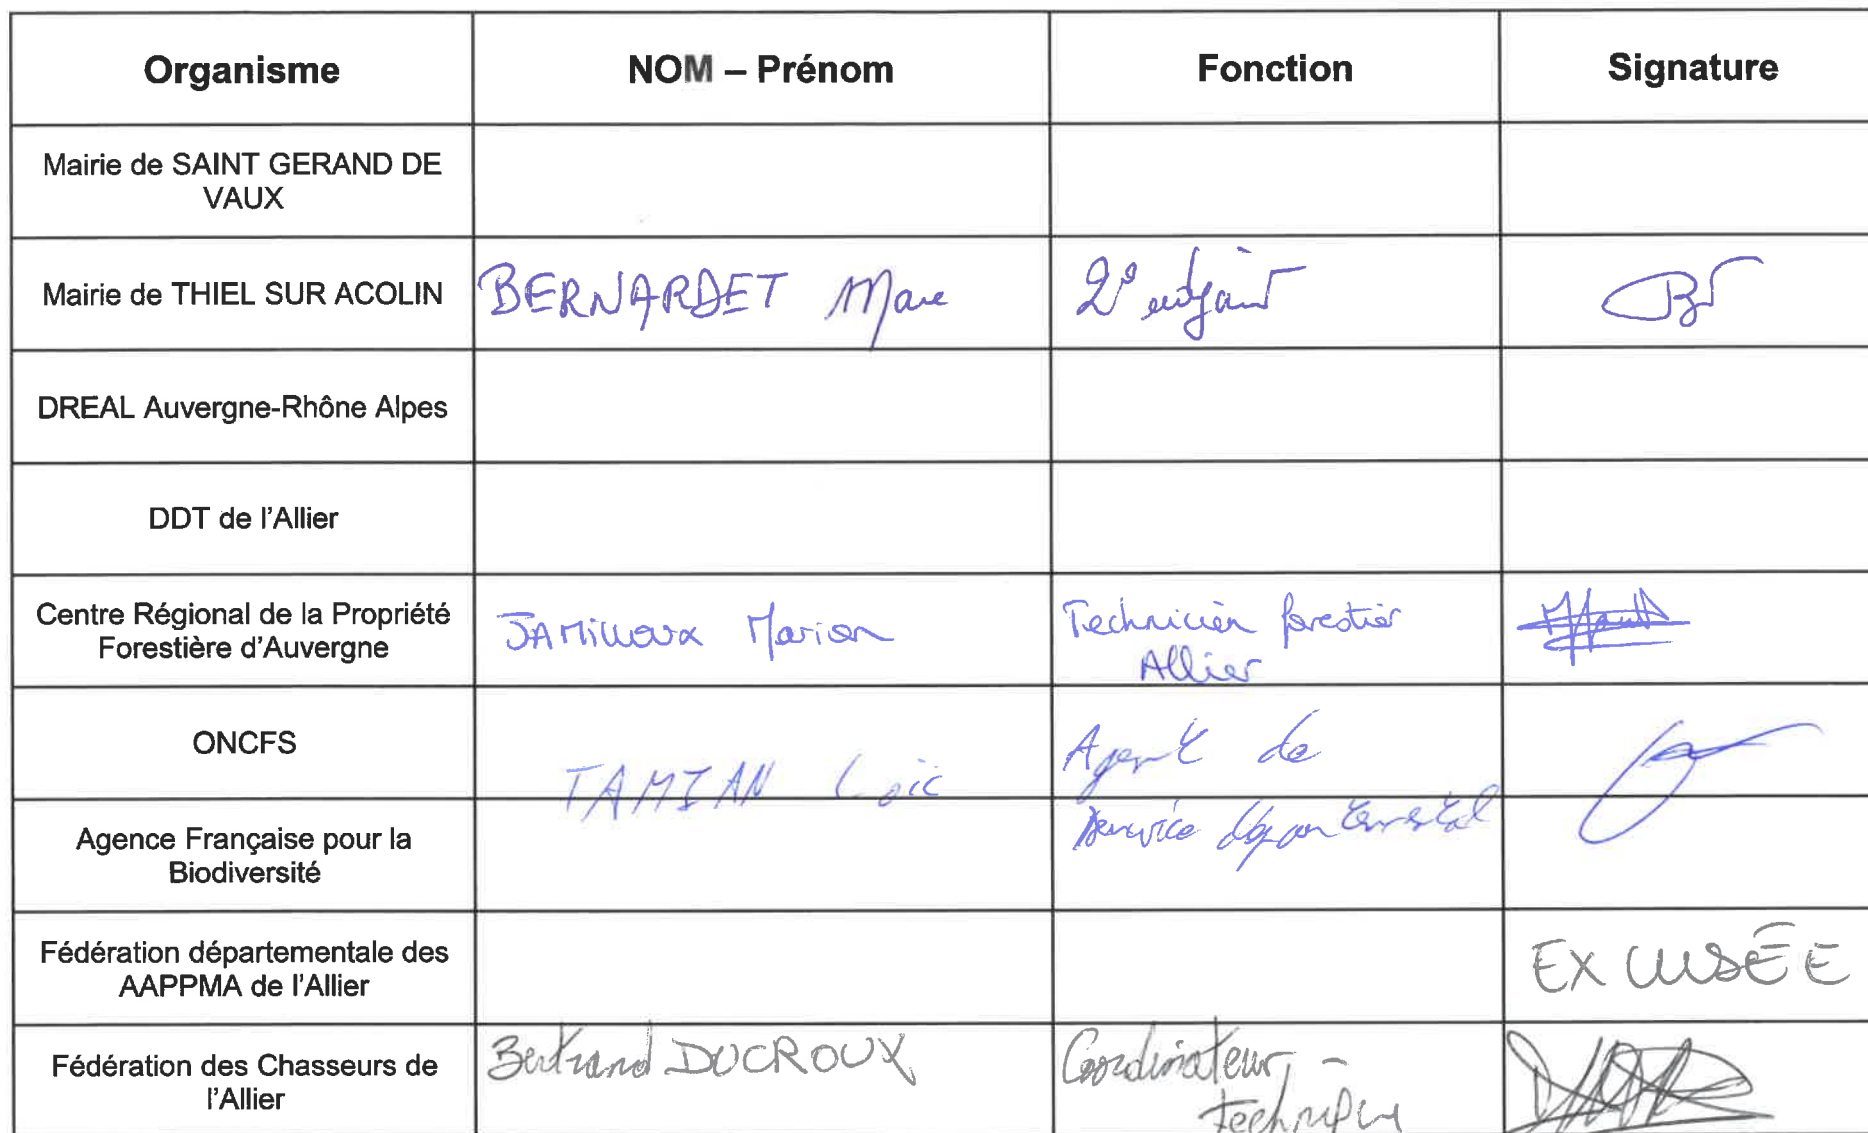 Organisme NOM – Prénom Fonction Signature
Mairie de SAINT GERAND DE
VAUX
Mairie de THIEL SUR ACOLIN BERNARDET Marc 2e adjoint
DREAL Auvergne-Rhône Alpes
DDT de l'Allier
Centre Régional de la Propriété
Forestière d'Auvergne
JAMilloux Marion
Technicien forestier
Allier
ONCFS
TAMIAN Loïc
Agent de
service départemental
Agence Française pour la
Biodiversité
Fédération départementale des
AAPPMA de l'Allier
EXCUSÉE
Fédération des Chasseurs de
l'Allier
Bertrand DUCROUX
Coordinateur
technique